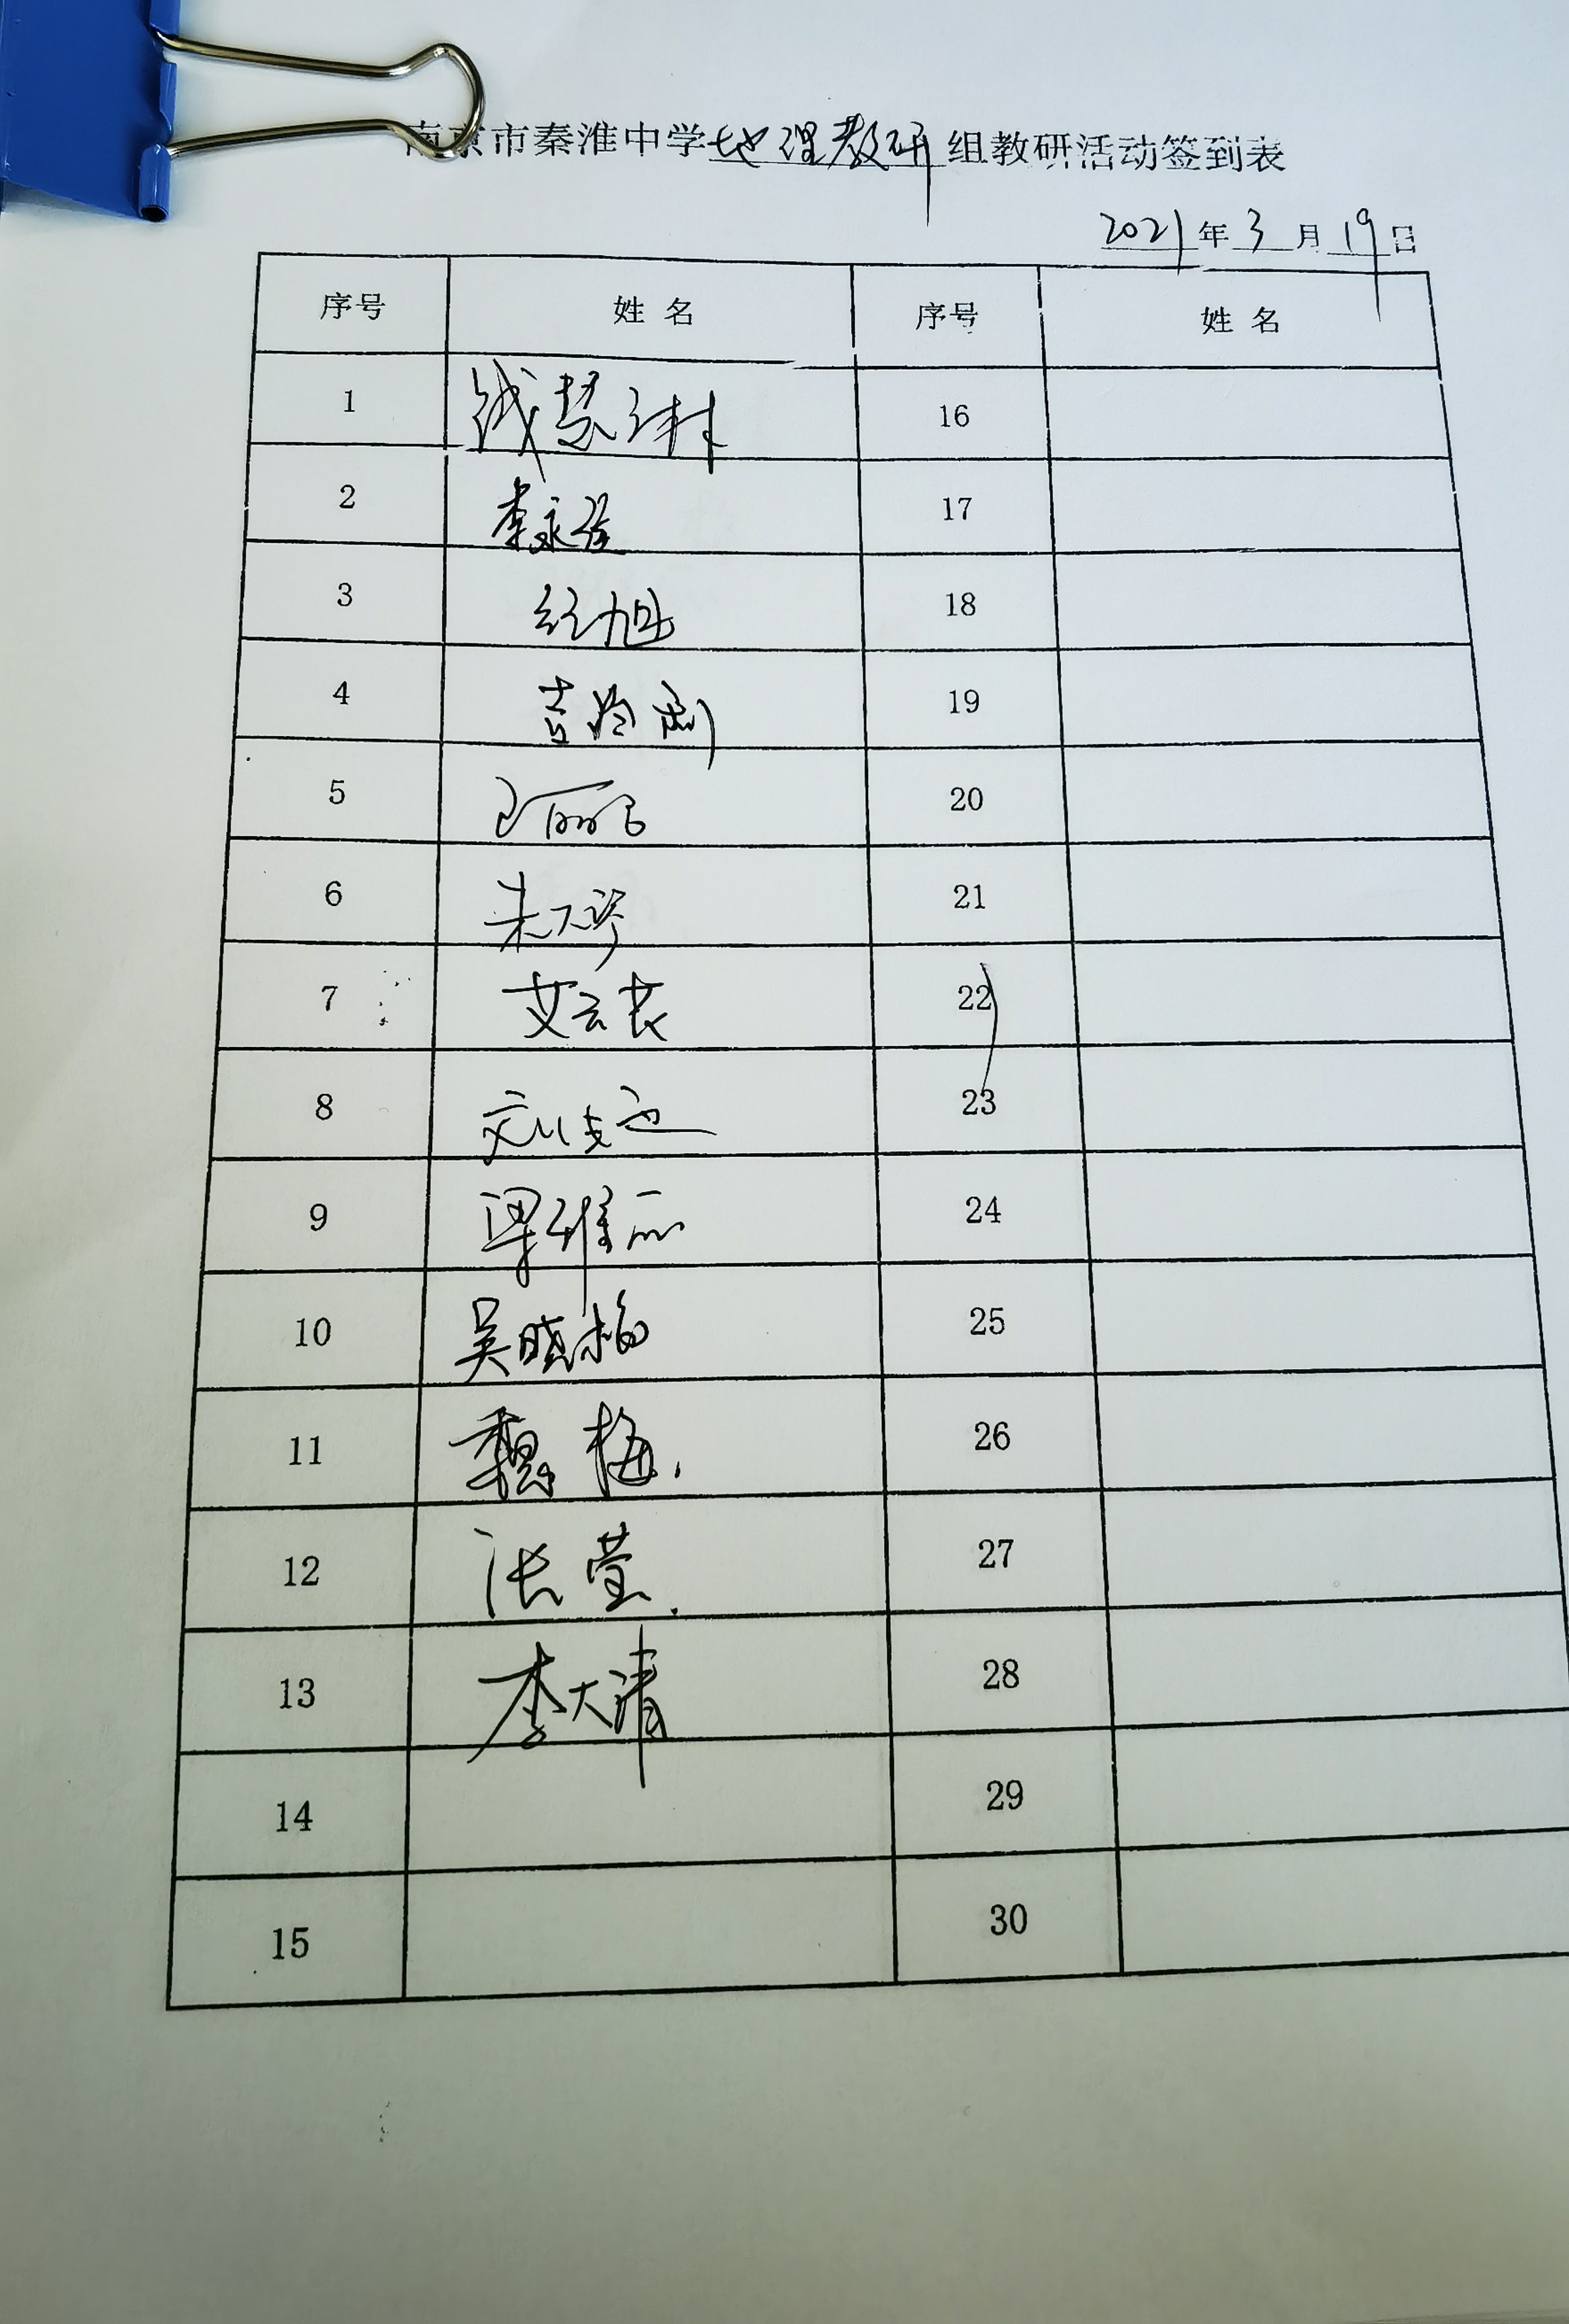 南京市秦淮中学地理教研组教研活动签到表
2021年3月19日
序号 姓名 序号 姓名
1 钱慧琳 16
2 李永强 17
3 18
4 19
5 20
6 21
7 艾云农 22
8 23
9 梁维丽 24
10 吴晓梅 25
11 魏梅. 26
12 张莹. 27
13 李大清 28
14 29
15 30